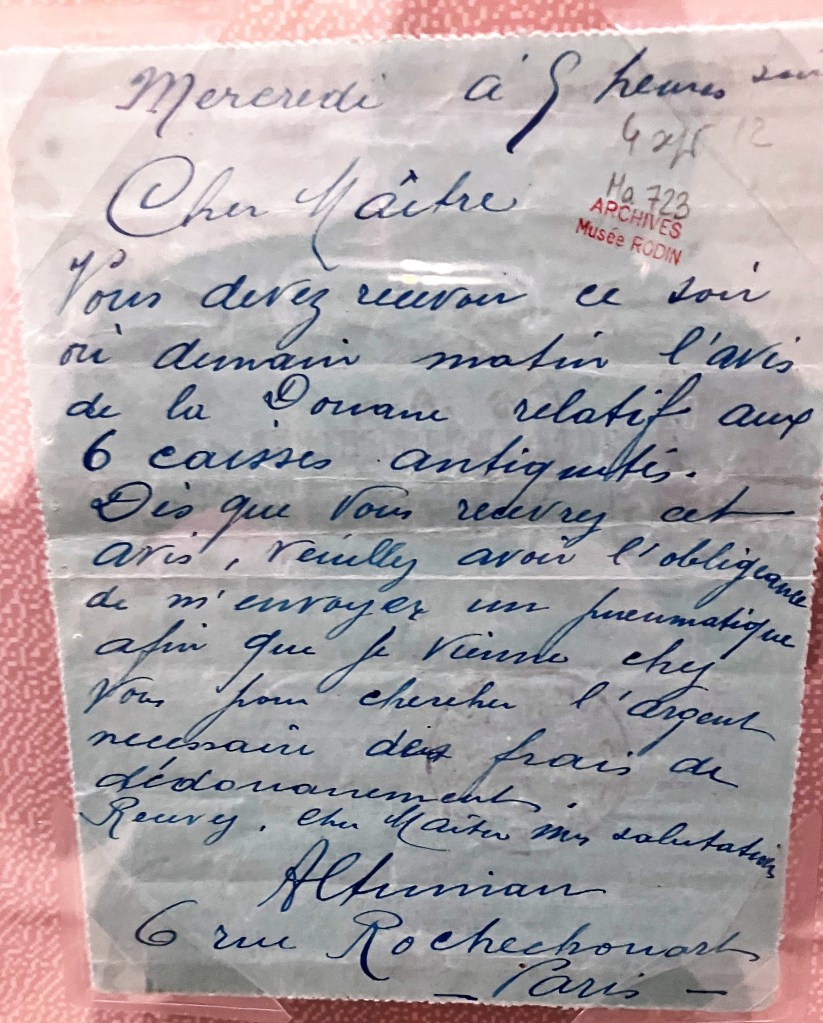 Mercredi à 5 heures soir
4 12
Ma 723
ARCHIVES
Musée RODIN
Cher Maître
Vous devez recevoir ce soir
où demain matin l'avis
de la Douane relatif aux
6 caisses antiquités.
Dès que Vous recevrez cet
avis, veuillez avoir l'obligeance
de m'envoyer un pneumatique
afin que je vienne chez
Vous pour chercher l'argent
necessaire des frais de
dédouanement.
Recevez, cher Maître mes salutations
Altounian
6 rue Rochechouart
— Paris —